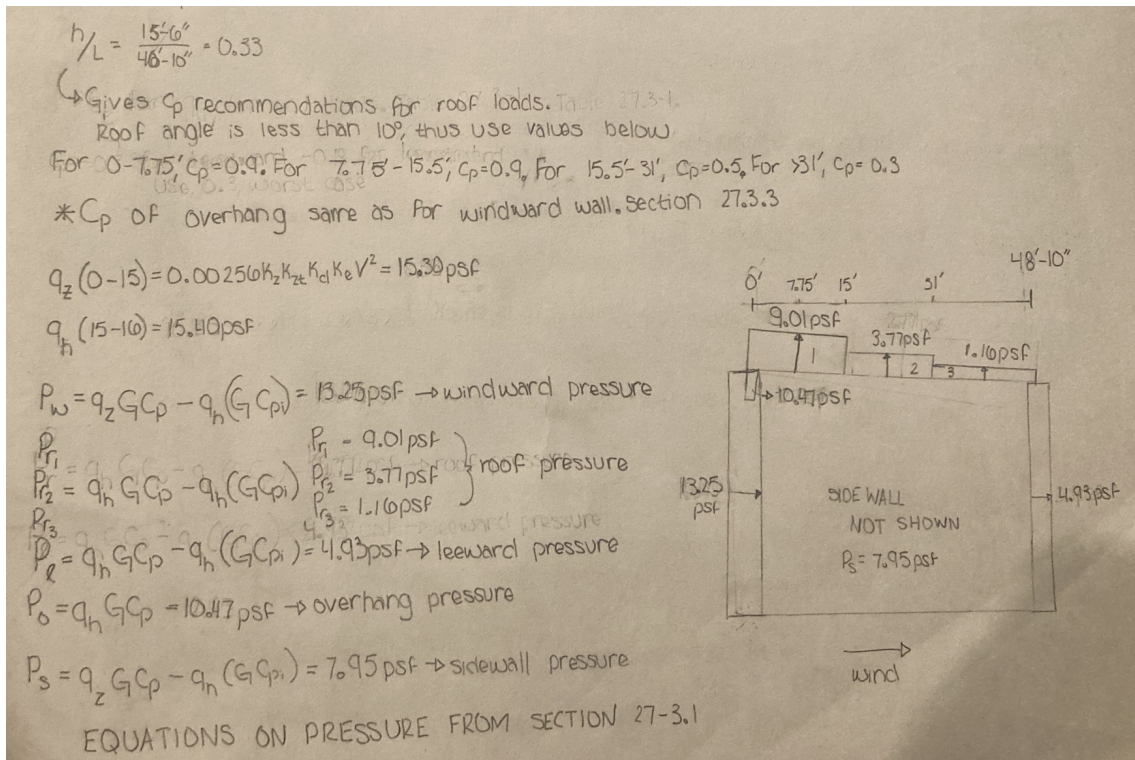 h/L = 15'-6" / 46'-10" = 0.33
↳ Gives Cp recommendations for roof loads.
Roof angle is less than 10°, thus use values below
For 0-7.75', Cp=0.9. For 7.75'-15.5', Cp=0.9, For 15.5'-31', Cp=0.5, For >31', Cp= 0.3
*Cp of overhang same as for windward wall. Section 27.3.3
qz (0-15) = 0.00256KzKztKdKeV² = 15.30psf
qh (15-16) = 15.40psf
Pw = qzGCp - qh(GCpi) = 13.25psf → windward pressure
Pr1
Pr2 = qhGCp - qh(GCpi)
Pr3
Pr1 = 9.01psf
Pr2 = 3.77psf
Pr3 = 1.16psf
} roof pressure
Pl = qhGCp - qh(GCpi) = 4.93psf → leeward pressure
Po = qhGCp = 10.47psf → overhang pressure
Ps = qzGCp - qh(GCpi) = 7.95psf → sidewall pressure
EQUATIONS ON PRESSURE FROM SECTION 27-3.1
0' 7.75' 15' 31' 48'-10"
9.01psf
3.77psf
1.16psf
1 2 3
10.47psf
13.25
psf
4.93psf
SIDE WALL
NOT SHOWN
Ps = 7.95psf
wind